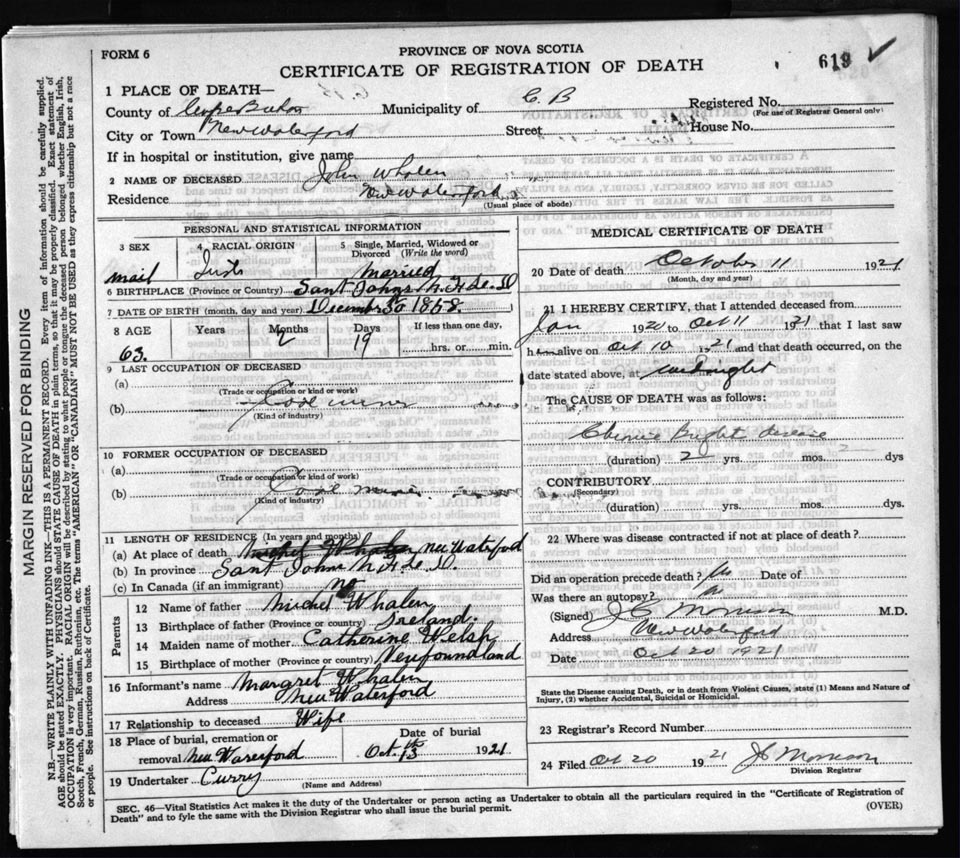 FORM 6
PROVINCE OF NOVA SCOTIA
CERTIFICATE OF REGISTRATION OF DEATH
619
1 PLACE OF DEATH—
County of Cape Breton Municipality of C. B Registered No.
(For use of Registrar General only)
City or Town New Waterford Street House No.
If in hospital or institution, give name
2 NAME OF DECEASED John Whalen
Residence New Waterford
(Usual place of abode)
PERSONAL AND STATISTICAL INFORMATION
3 SEX 4 RACIAL ORIGIN 5 Single, Married, Widowed or Divorced (Write the word)
mail Irish married
6 BIRTHPLACE (Province or Country) Sant Johns
7 DATE OF BIRTH (month, day and year) December 30 1858.
8 AGE Years Months Days If less than one day,
63. 19 hrs. or min.
9 LAST OCCUPATION OF DECEASED
(a)
(Trade or occupation or kind or work)
(b)
(Kind of industry)
10 FORMER OCCUPATION OF DECEASED
(a)
(Trade or occupation or kind of work)
(b)
(Kind of industry)
11 LENGTH OF RESIDENCE (In years and months)
(a) At place of death Michel Whalen New Waterford
(b) In province Sant Johns
(c) In Canada (if an immigrant) no
Parents
12 Name of father Mischel Whalen
13 Birthplace of father (Province or country) Ireland.
14 Maiden name of mother Catherine Welsh
15 Birthplace of mother (Province or country) Newfoundland
16 Informant's name Margret Whalen
Address New Waterford
17 Relationship to deceased Wife
18 Place of burial, cremation or Date of burial
removal New Waresford Oct. 13th 1921
19 Undertaker Curry
(Name and Address)
MEDICAL CERTIFICATE OF DEATH
20 Date of death October 11 1921
(Month, day and year)
21 I HEREBY CERTIFY, that I attended deceased from
Jan 1920 to Oct 11 1921 that I last saw
h alive on Oct 10 1921 and that death occurred, on the
date stated above, at midnight
The CAUSE OF DEATH was as follows:
Chronic Bright disease
(duration) 2 yrs. mos. dys
CONTRIBUTORY
(Secondary)
(duration) yrs. mos. dys.
22 Where was disease contracted if not at place of death?
Did an operation precede death? No Date of
Was there an autopsy?
(Signed) M.D.
Address New Waterford
Date Oct 20 1921
State the Disease causing Death, or in death from Violent Causes, state (1) Means and Nature of
Injury, (2) whether Accidental, Suicidal or Homicidal.
23 Registrar's Record Number
24 Filed Oct 20 1921
Division Registrar
SEC. 46—Vital Statistics Act makes it the duty of the Undertaker or person acting as Undertaker to obtain all the particulars required in the "Certificate of Registration of
Death" and to fyle the same with the Division Registrar who shall issue the burial permit.
(OVER)
MARGIN RESERVED FOR BINDING
N.B.—WRITE PLAINLY WITH UNFADING INK—THIS IS A PERMANENT RECORD. Every item of information should be carefully supplied.
AGE should be stated EXACTLY. PHYSICIANS should STATE CAUSE OF DEATH in plain terms, so that it may be properly classified. Exact statement of
OCCUPATION is very important. RACIAL ORIGIN will be described by stating to what people or tongue the deceased person belonged whether English, Irish,
Scotch, French, German, Russian, Ruthenian, etc. The terms "AMERICAN" OR "CANADIAN" MUST NOT BE USED as they express citizenship but not a race
or people. See instructions on back of Certificate.